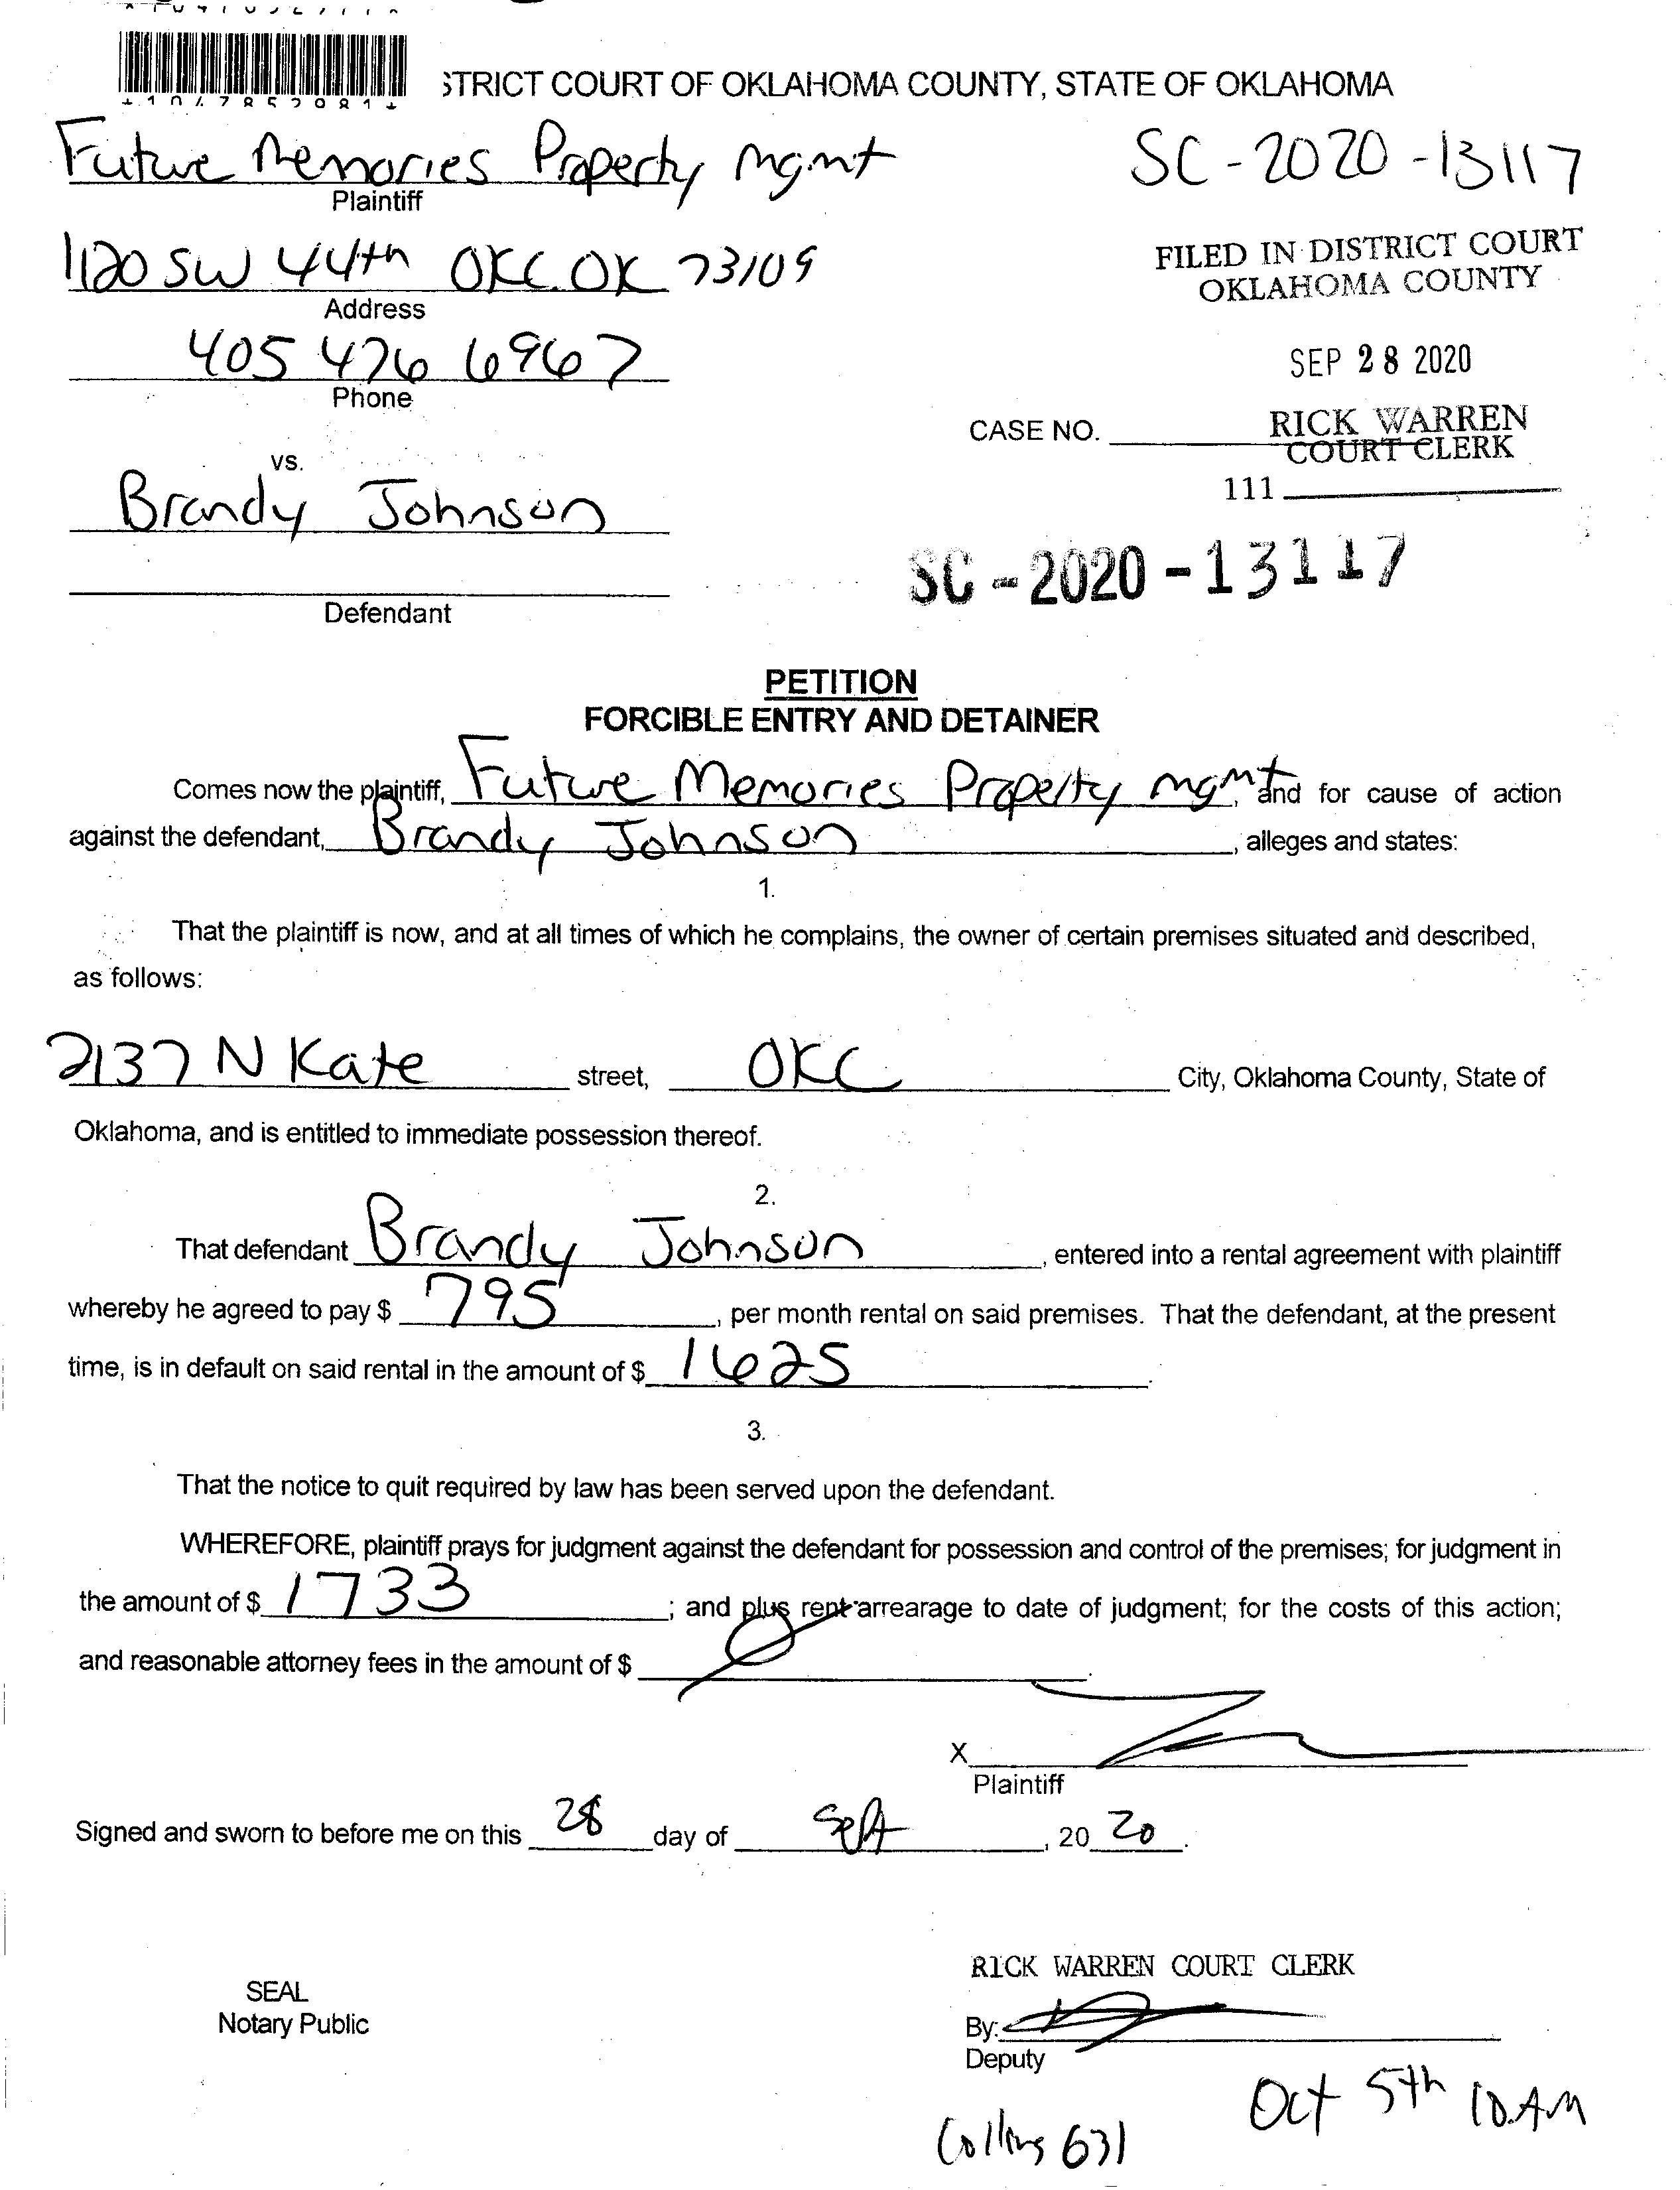 *1047852981*
STRICT COURT OF OKLAHOMA COUNTY, STATE OF OKLAHOMA
Future Memories Property Mgmt
SC-2020-13117
Plaintiff
1120 SW 44th OKC OK 73109
FILED IN DISTRICT COURT
OKLAHOMA COUNTY
Address
405 476 6967
SEP 28 2020
Phone
CASE NO.
RICK WARREN
COURT CLERK
vs.
111
Brandy Johnson
SC-2020-13117
Defendant
PETITION
FORCIBLE ENTRY AND DETAINER
Comes now the plaintiff, Future Memories Property mgmt, and for cause of action
against the defendant, Brandy Johnson, alleges and states:
1.
That the plaintiff is now, and at all times of which he complains, the owner of certain premises situated and described,
as follows:
2137 N Kate street, OKC City, Oklahoma County, State of
Oklahoma, and is entitled to immediate possession thereof.
2.
That defendant Brandy Johnson, entered into a rental agreement with plaintiff
whereby he agreed to pay $ 795, per month rental on said premises. That the defendant, at the present
time, is in default on said rental in the amount of $ 1625.
3.
That the notice to quit required by law has been served upon the defendant.
WHEREFORE, plaintiff prays for judgment against the defendant for possession and control of the premises; for judgment in
the amount of $ 1733; and plus rent arrearage to date of judgment; for the costs of this action;
and reasonable attorney fees in the amount of $ Ø.
X
Plaintiff
Signed and sworn to before me on this 28 day of Sept, 2020.
RICK WARREN COURT CLERK
SEAL
Notary Public
By:
Deputy
Oct 5th 10 AM
Collins 631